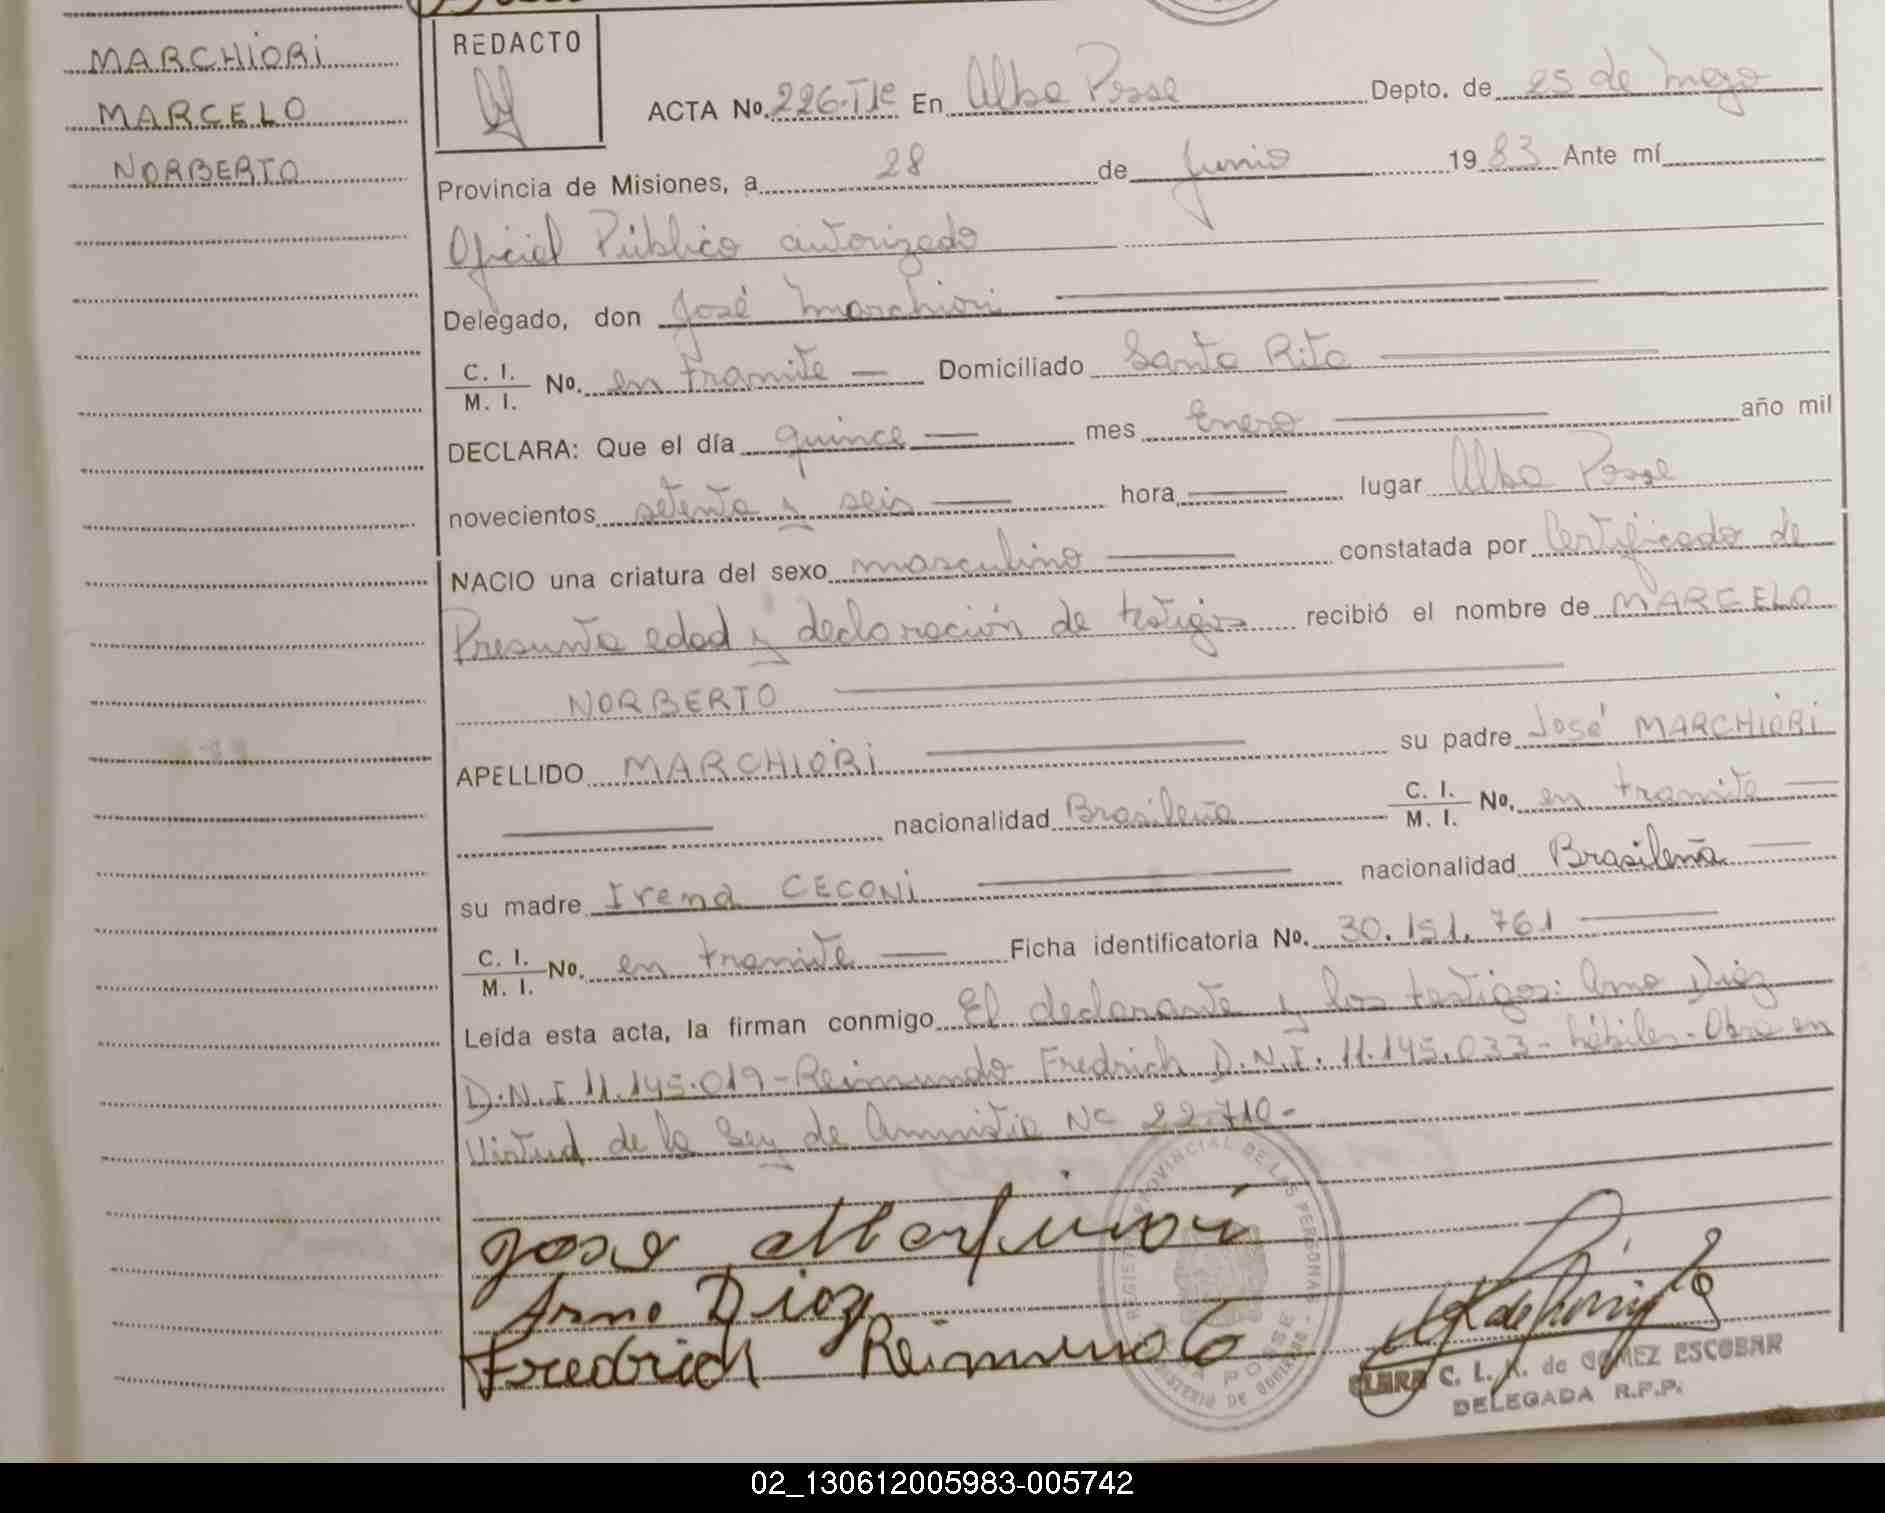 MARCHIORI
MARCELO
NORBERTO
REDACTO
ACTA No. 226-TIe En Alba Posse Depto. de 25 de mayo
Provincia de Misiones, a 28 de Junio 19 83 Ante mí
Oficial Público autorizado
Delegado, don José Marchiori
C. I. / M. I. No. en tramite Domiciliado Santa Rita
DECLARA: Que el día quince mes Enero año mil
novecientos setenta y seis hora lugar Alba Posse
NACIO una criatura del sexo masculino constatada por Certificado de
Presunta edad y declaración de testigos recibió el nombre de MARCELO
NORBERTO
APELLIDO MARCHIORI su padre José MARCHIORI
nacionalidad Brasileña C. I. / M. I. No. en tramite
su madre Irena CECONI nacionalidad Brasileña
C. I. / M. I. No. en tramite Ficha identificatoria No. 30.151.761
Leída esta acta, la firman conmigo El declarante y los testigos: Arno Dioz
D.N.I 11.145.019-Reimundo Fredrich D.N.I. 11.145.033-hábiles-Obra en
Virtud de la Ley de Amnistia Nº 22.710-
Jose Marhiori
Arno Dioz
Fredrich Reimundo
REGISTRO PROVINCIAL DE LAS PERSONAS
ALBA POSSE
MINISTERIO DE GOBIERNO
CLARA C. L. K. de GOMEZ ESCOBAR
DELEGADA R.P.P.
02_130612005983-005742